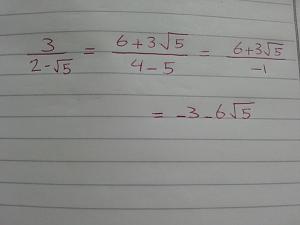 3/(2-√5) = (6+3√5)/(4-5) = (6+3√5)/-1
= -3-6√5